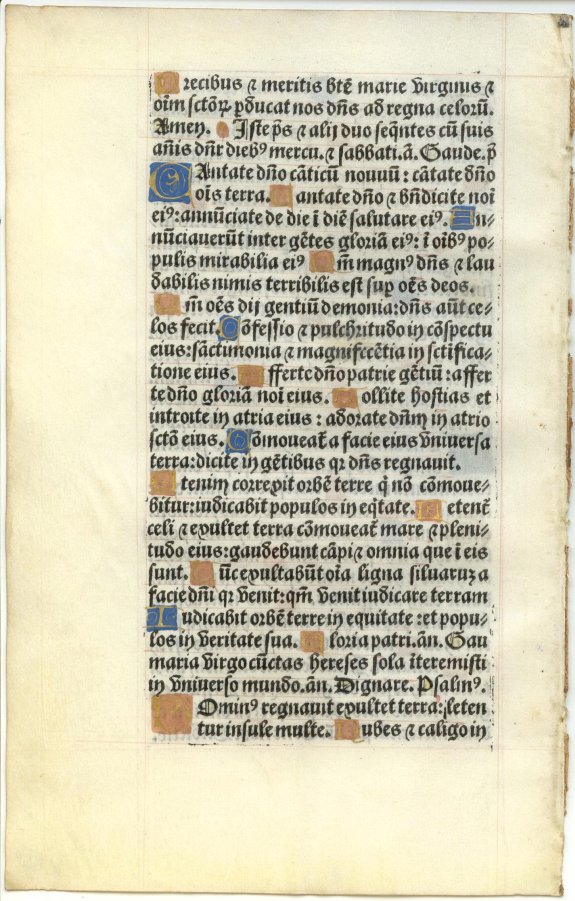 Precibus ⁊ meritis btē marie virginis ⁊
oīm sctōꝝ ꝑducat nos dn̄s ad regna celorū.
Amen. Iste p̄s ⁊ alij duo seqn̄tes cū suis
an̄is dn̄r diebꝰ mercu. ⁊ sabbati. ā. Gaude. p̄
CAntate dn̄o cāticū nouuū : cātate dn̄o
oīs terra. Cantate dn̄o ⁊ bn̄dicite noī
eiꝰ: annūciate de die ī diē salutare eiꝰ. An⸗
nūciauerūt inter gētes gloriā eiꝰ: ī oībꝰ po⸗
pulis mirabilia eiꝰ Qm̄ magnꝰ dn̄s ⁊ lau
dabilis nimis terribilis est suꝑ oēs deos.
Qm̄ oēs dij gentiū demonia: dn̄s aūt ce⸗
los fecit. Cōfessio ⁊ pulchritudo in cōspectu
eius: sāctimonia ⁊ magnifecētia in sctīfica⸗
tione eius. Afferte dn̄o patrie gētiū : affer
te dn̄o gloriā noī eius. Tollite hostias et
introite in atria eius : adorate dn̄m in atrio
sctō eius. Cōmoueat̄ a facie eius vniuersa
terra: dicite in gētibus qꝛ dn̄s regnauit.
Etenim correxit orbē terre q̄ nō cōmoue⸗
bitur: iudicabit populos in eq̄tate. Letent̄
celi ⁊ exultet terra cōmoueat̄ mare ⁊ pleni⸗
tudo eius: gaudebunt cāpi ⁊ omnia que ī eis
sunt. Tūc exultabūt oīa ligna siluaruꝫ a
facie dn̄i qꝛ venit: qm̄ venit iudicare terram
Iudicabit orbē terre in equitate : et popu⸗
los in veritate sua. Gloria patri. ān. Gau
maria virgo cūctas hereses sola īteremisti
in vniuerso mundo. ān. Dignare. Psalmꝰ.
Dominꝰ regnauit exultet terra: leten
tur insule multe. Nubes ⁊ caligo in